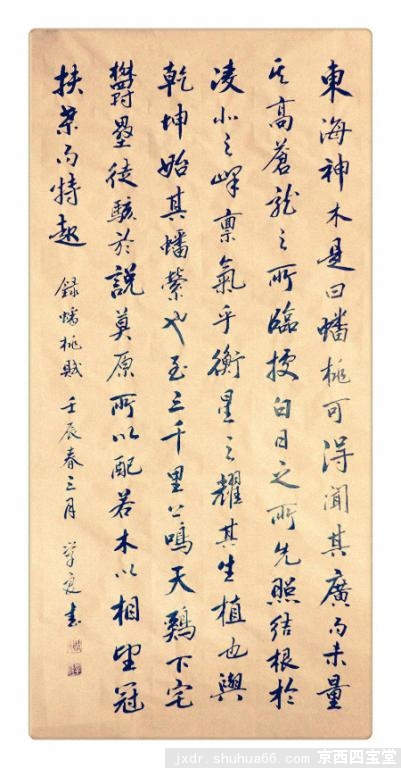 東海神木是曰蟠桃可得聞其廣而未量
其高蒼龍之所臨據白日之所先照結根於
凌北之嶧稟氣乎衡星之耀其生植也與
乾坤始其蟠縈也至三千里上鳴天鷄下宅
鬱壘徒駭於說莫原所以配若木以相望冠
扶桑而特趣
錄蟠桃賦 壬辰春三月 學書
jxdr.shuhua66.com 京西四宝堂